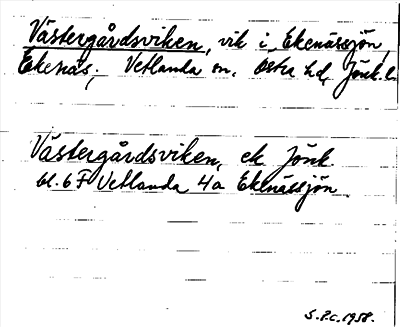 Västergårdsviken, vik i Ekenässjön,
Ekenäs, Vetlanda sn, Östra hd, Jönk. l.
Västergårdsviken, ek Jönk
bl. 6 F Vetlanda 4a Ekenässjön
S.P.C. 1958.